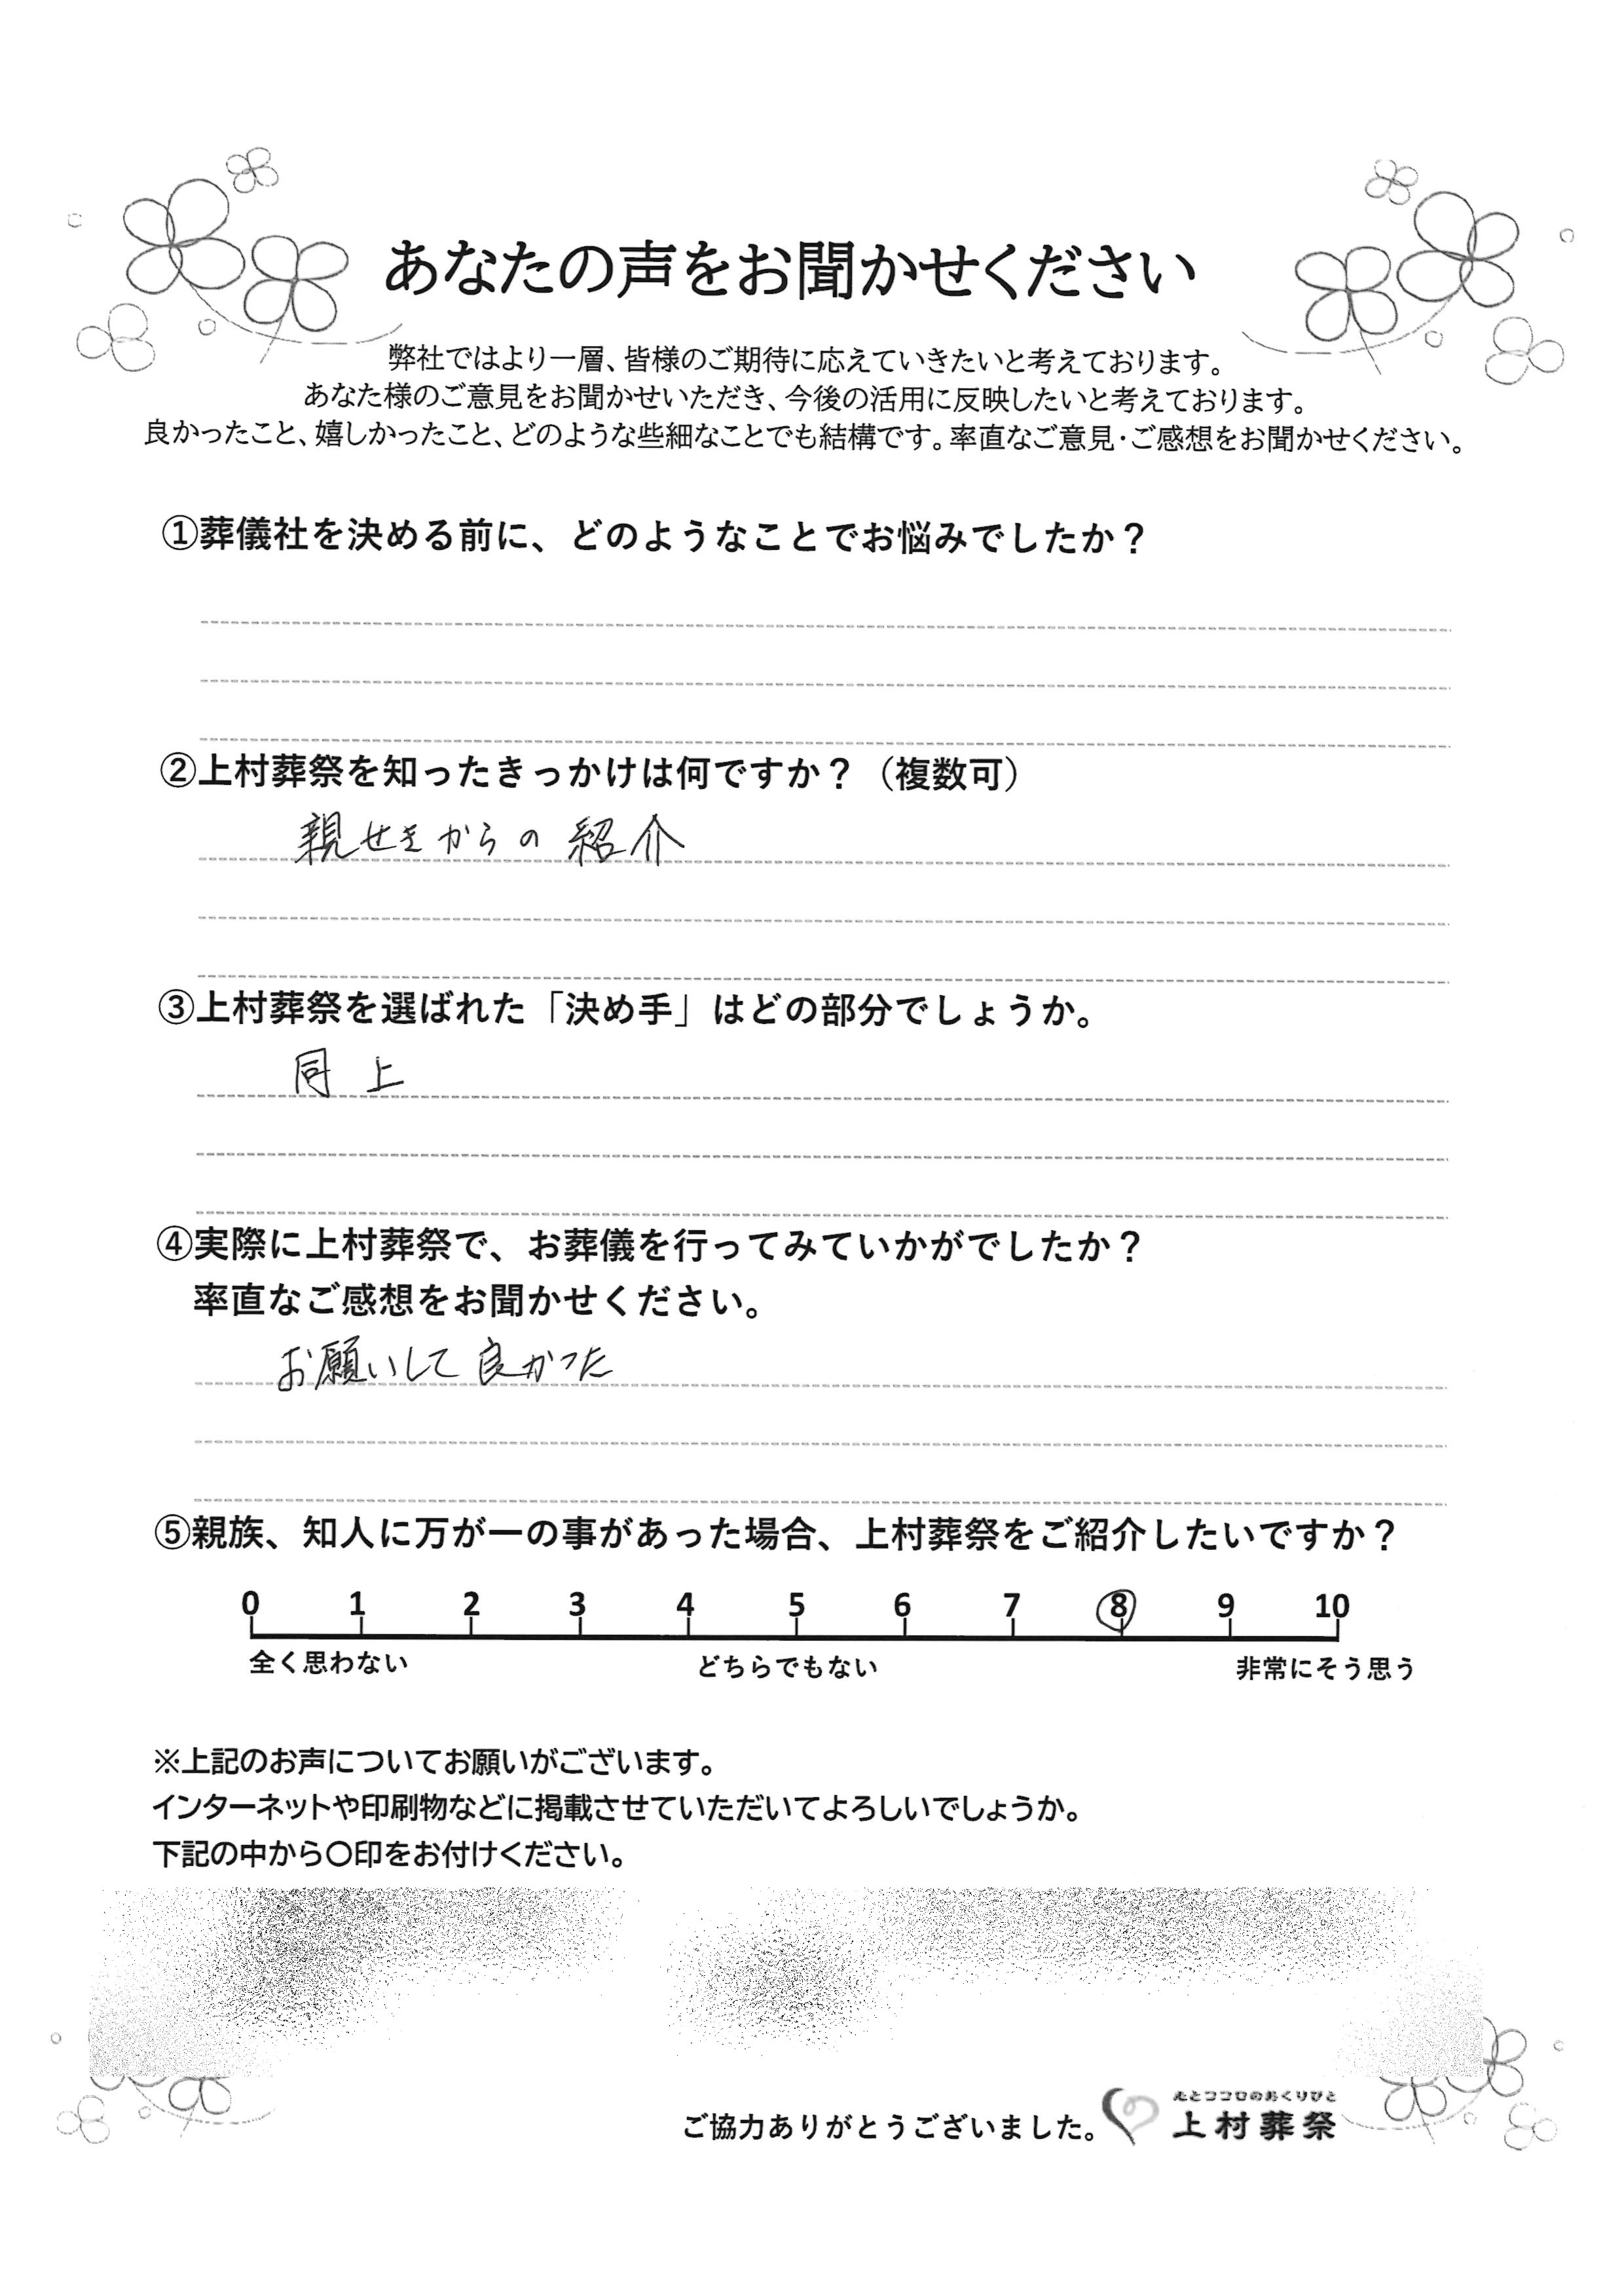 あなたの声をお聞かせください
弊社ではより一層、皆様のご期待に応えていきたいと考えております。
あなた様のご意見をお聞かせいただき、今後の活用に反映したいと考えております。
良かったこと、嬉しかったこと、どのような些細なことでも結構です。率直なご意見・ご感想をお聞かせください。
①葬儀社を決める前に、どのようなことでお悩みでしたか？
②上村葬祭を知ったきっかけは何ですか？（複数可）
親せきからの紹介
③上村葬祭を選ばれた「決め手」はどの部分でしょうか。
同上
④実際に上村葬祭で、お葬儀を行ってみていかがでしたか？
率直なご感想をお聞かせください。
お願いして良かった
⑤親族、知人に万が一の事があった場合、上村葬祭をご紹介したいですか？
0 1 2 3 4 5 6 7 8 9 10
全く思わない どちらでもない 非常にそう思う
※上記のお声についてお願いがございます。
インターネットや印刷物などに掲載させていただいてよろしいでしょうか。
下記の中から〇印をお付けください。
心とココロのおくりびと
ご協力ありがとうございました。 上村葬祭